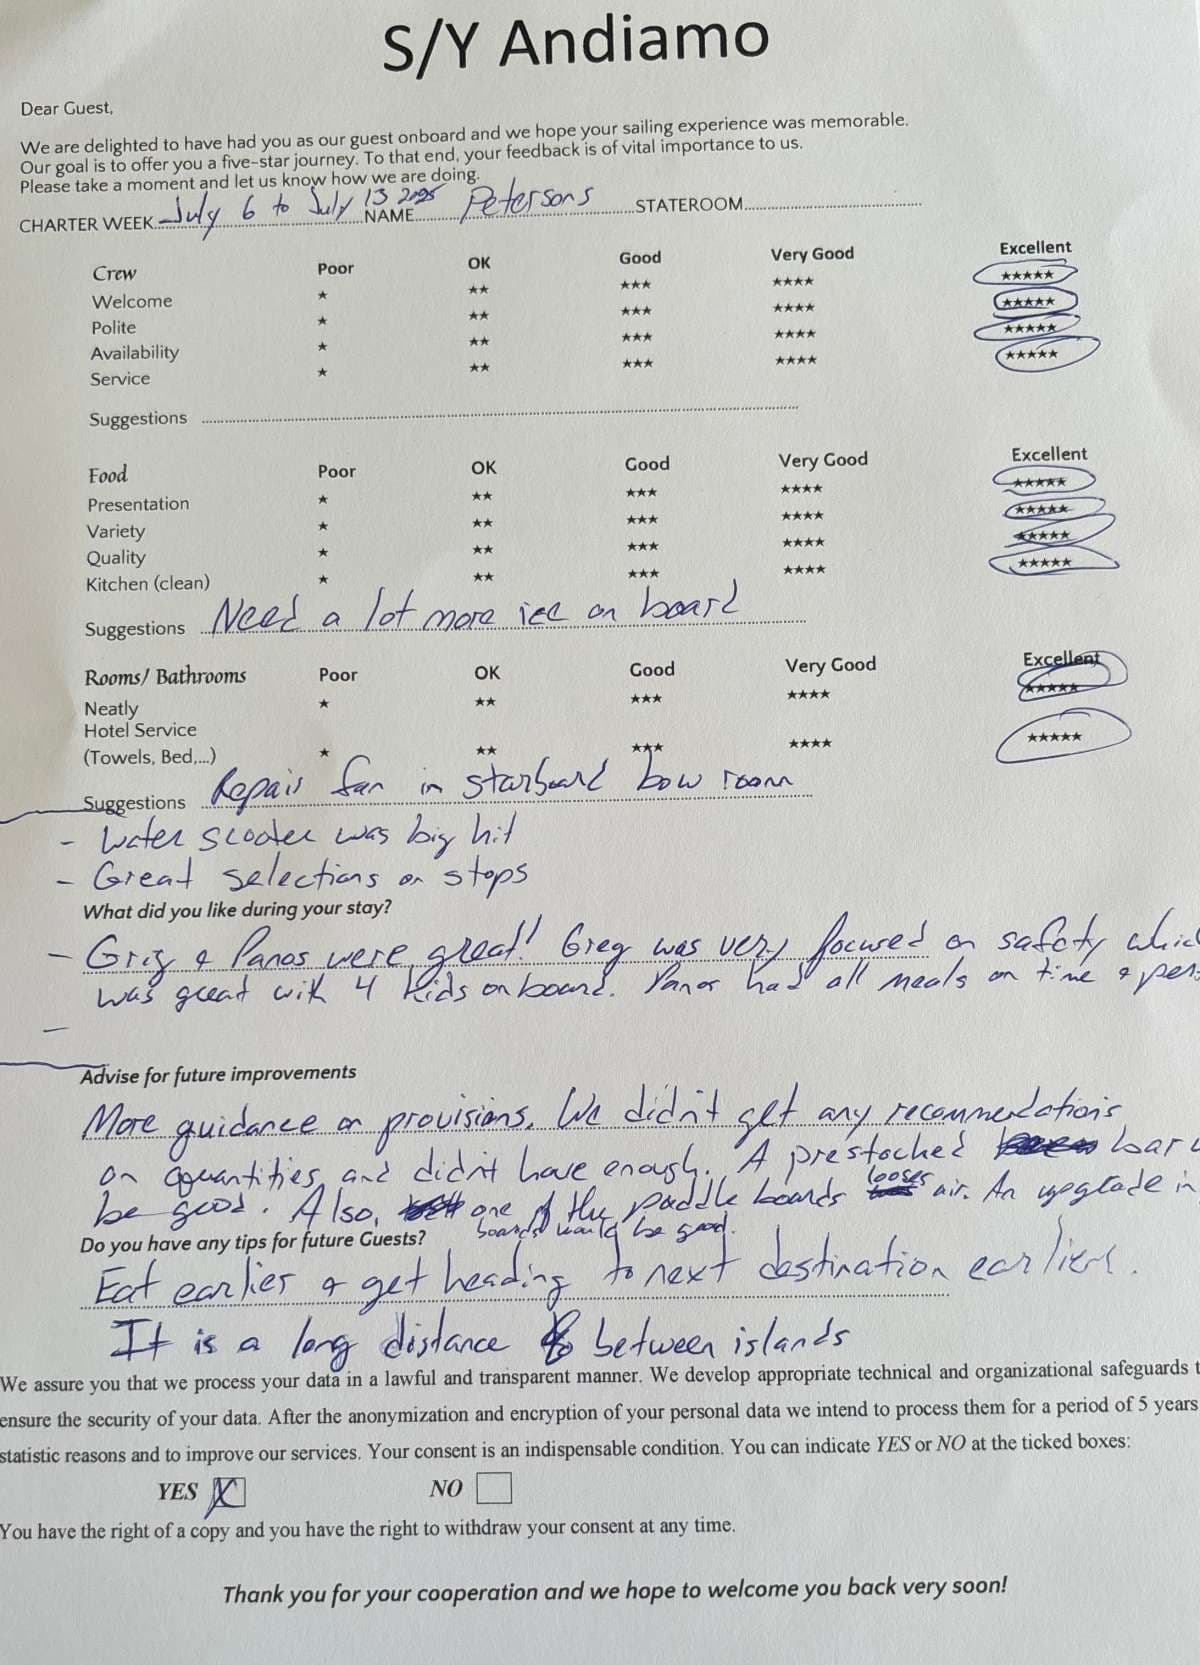 S/Y Andiamo
Dear Guest,
We are delighted to have had you as our guest onboard and we hope your sailing experience was memorable.
Our goal is to offer you a five-star journey. To that end, your feedback is of vital importance to us.
Please take a moment and let us know how we are doing.
CHARTER WEEK July 6 to July 13 2025 NAME Petersons STATEROOM
Crew Poor OK Good Very Good Excellent
Welcome ★ ★★ ★★★ ★★★★ ★★★★★
Polite ★ ★★ ★★★ ★★★★ ★★★★★
Availability ★ ★★ ★★★ ★★★★ ★★★★★
Service ★ ★★ ★★★ ★★★★ ★★★★★
Suggestions
Food Poor OK Good Very Good Excellent
Presentation ★ ★★ ★★★ ★★★★ ★★★★★
Variety ★ ★★ ★★★ ★★★★ ★★★★★
Quality ★ ★★ ★★★ ★★★★ ★★★★★
Kitchen (clean) ★ ★★ ★★★ ★★★★ ★★★★★
Suggestions Need a lot more ice on board
Rooms/ Bathrooms Poor OK Good Very Good Excellent
Neatly ★ ★★ ★★★ ★★★★ ★★★★★
Hotel Service
(Towels, Bed,...) ★ ★★ ★★★ ★★★★ ★★★★★
Suggestions Repair fan in starboard bow room
- Water scooter was big hit
- Great selections on stops
What did you like during your stay?
- Grig & Panos were great! Greg was very focused on safety whic
was great with 4 kids on board. Panos had all meals on time &
-
Advise for future improvements
More guidance on provisions. We didn't get any recommendations
on quantities and didn't have enough. A prestocked bar
be good. Also, one of the paddle boards looses air. An upgrade in
boards would be good.
Do you have any tips for future Guests?
Eat earlier & get heading to next destination earlier.
It is a long distance between islands
We assure you that we process your data in a lawful and transparent manner. We develop appropriate technical and organizational safeguards t
ensure the security of your data. After the anonymization and encryption of your personal data we intend to process them for a period of 5 years
statistic reasons and to improve our services. Your consent is an indispensable condition. You can indicate YES or NO at the ticked boxes:
YES X NO
You have the right of a copy and you have the right to withdraw your consent at any time.
Thank you for your cooperation and we hope to welcome you back very soon!